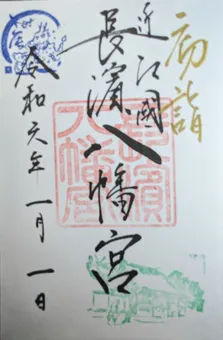 初詣
近江國
長濱八幡宮
長濱八幡宮
令和六年一月一日